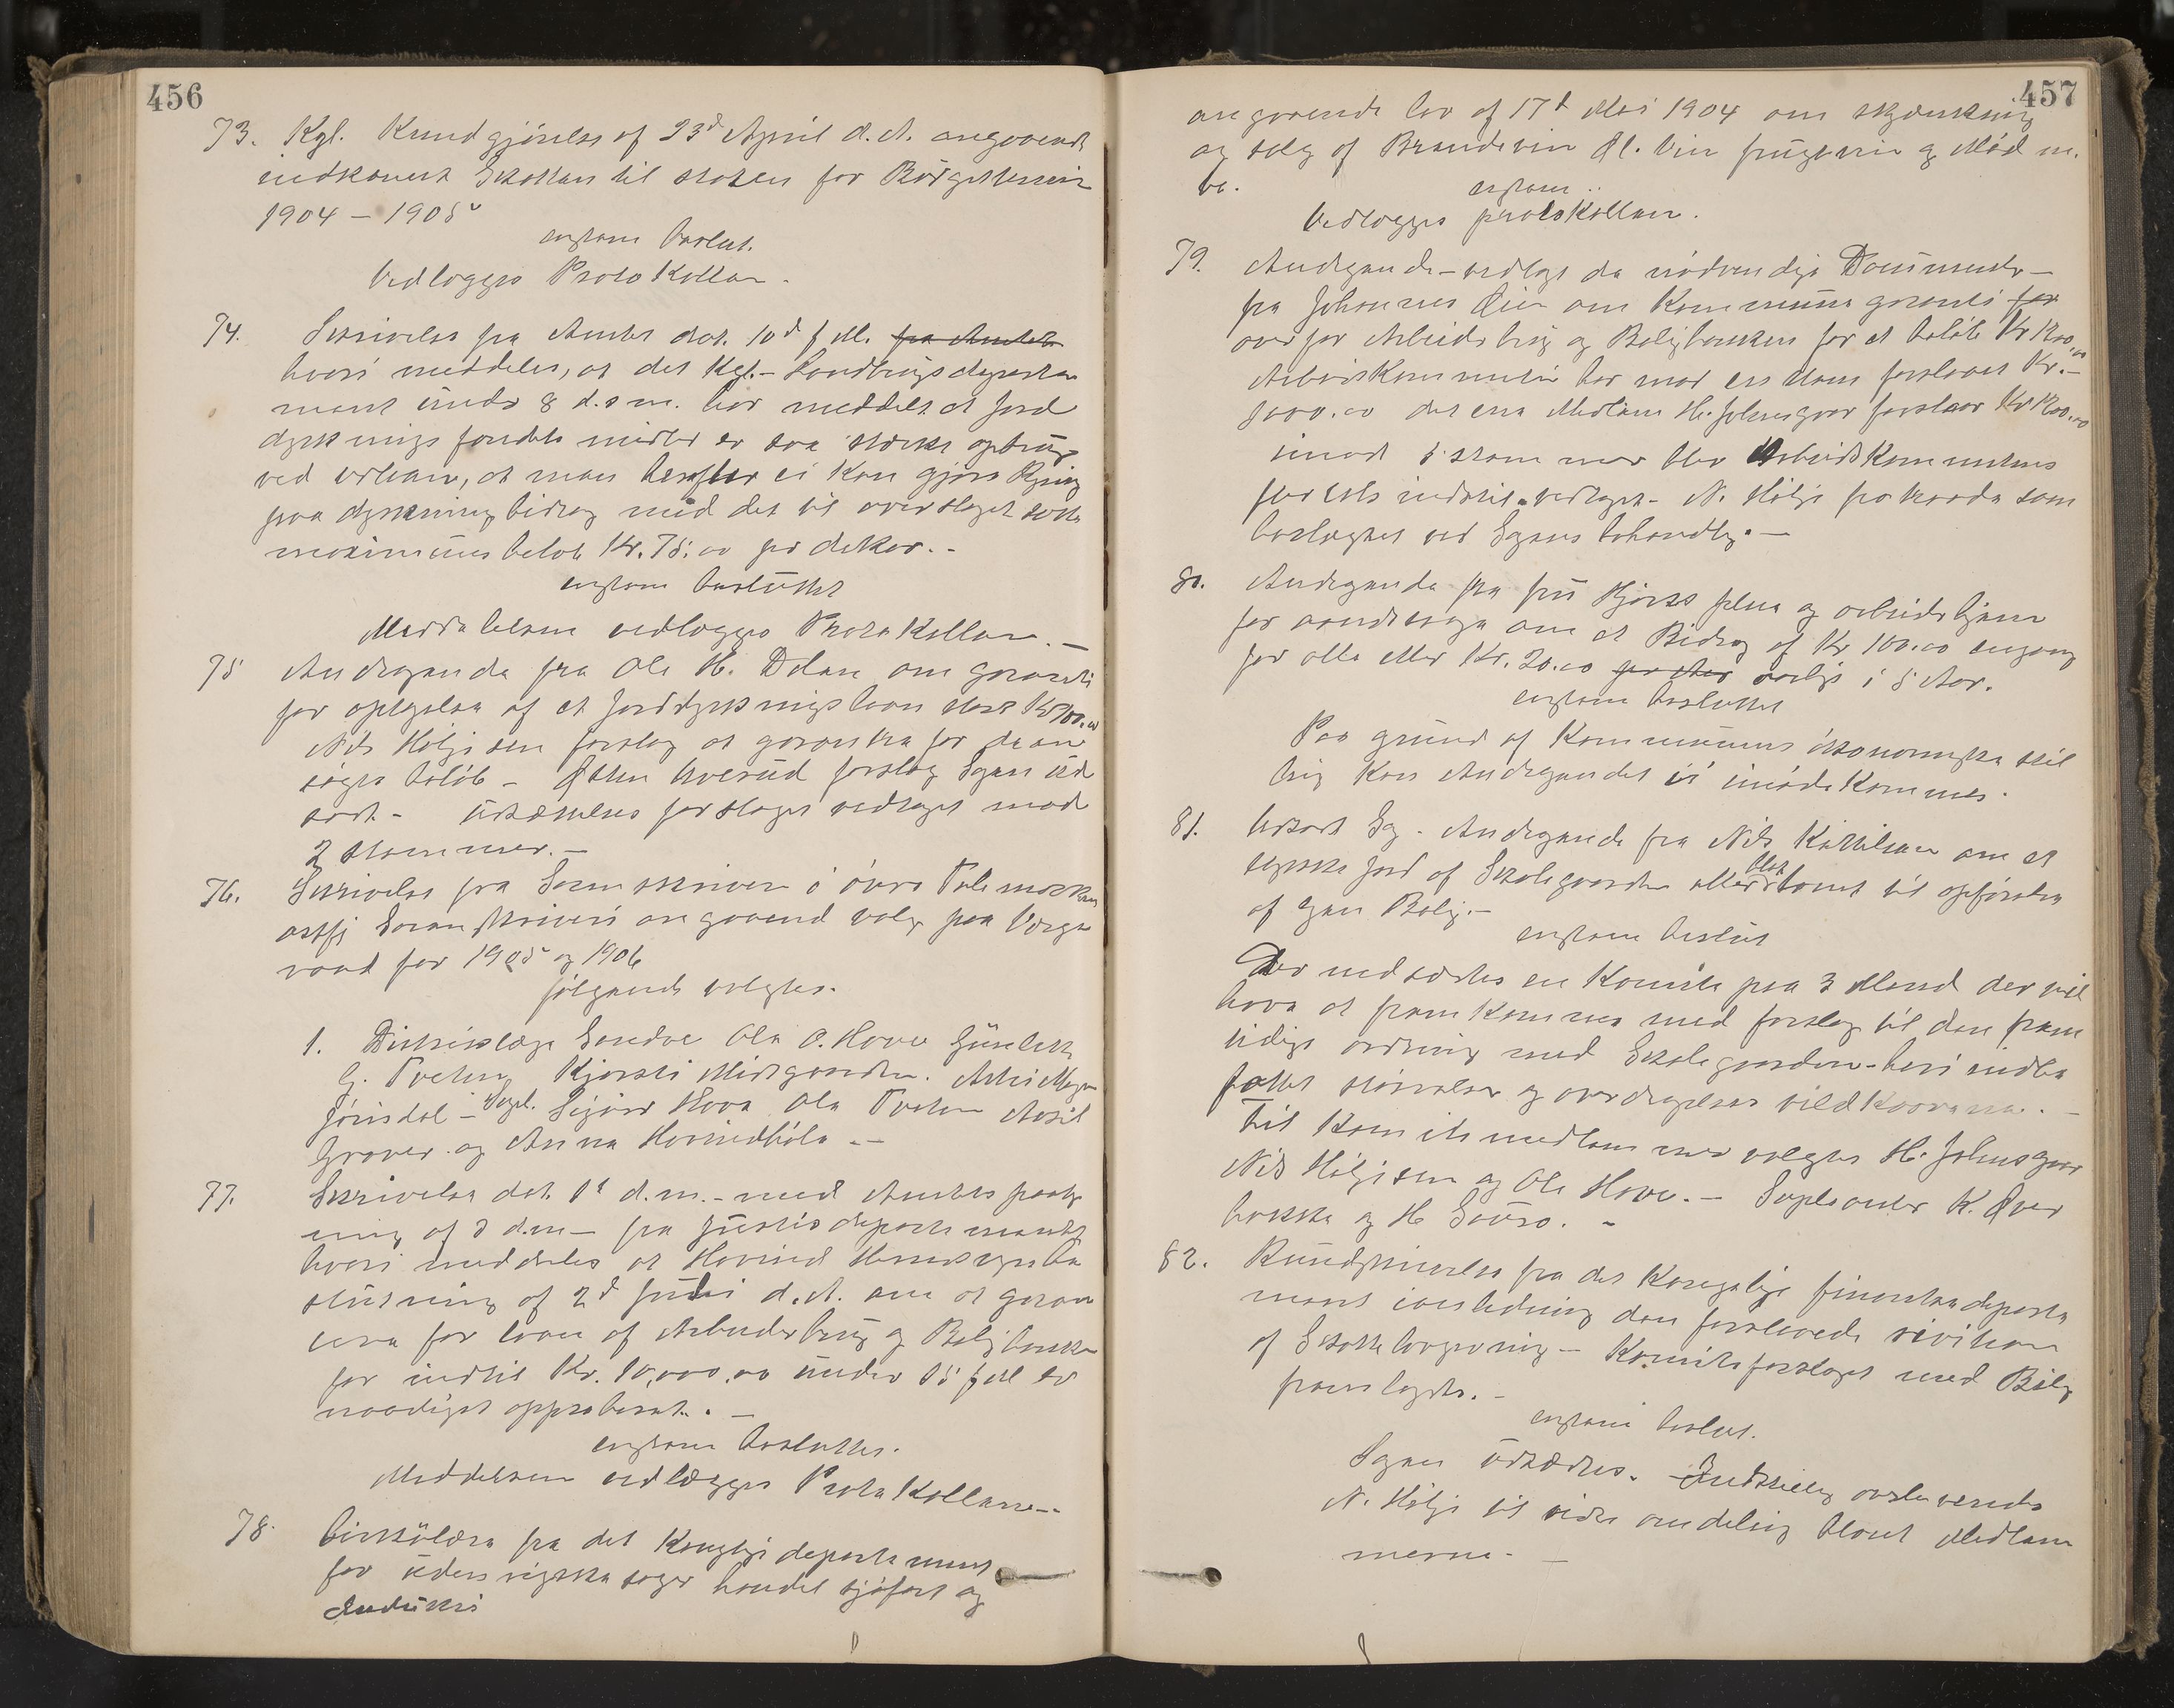 456
73. Kgl. Kundgjörelse af 23d April d. A. angaaende
indkomst Skatten til staten for Budgetterminen
1904 – 1905
enstem beslut.
Vedlægges Protokollen.
74. Skrivelse fra Amtet dat. 10d f. M. fra Amtet
hvori meddeles, at det Kgl. Landbrugsdeparte
ment under 8 d.s.m. har meddelt at Jord
dyrknings fondets midler er saa stærkt optaget
ved udlaan, at man herefter ei kan gjøre Regning
paa dyrkningsbidrag med det til overslaget satte
maximumsbeløb Kr. 75.00 pr dekar. –
enstem besluttet
Meddelelsen vedlægges Protokollen. –
75 Andragende fra Ole H. Dalen om garanti
for optagelse af et Jorddyrkningslaan stort Kr
Nils Höljesen forslog at garantere for det an
søgte beløb – Østen Haverud forslog Sagen ud
sat. – Udsættelses forslaget vedtaget mod
2 stemmer. –
76. Skrivelse fra Sorenskriveren i övre Telemarkens
østfj Sorenskriveri angaaende valg paa Værge
raad for 1905 og 1906
følgende valgtes.
1. Distriktslæge Sandve Ola O. Hove Gunleik
G. Tveten Kjersti Midgaarden.
Jönsdal – Supl. Ola Tveten Aasil
Graver og Anna Hovindböle. –
77. Skrivelse dat. 1st d.m. – med Amtets paateg
ning af 3 d.m – fra Justisdepartementet
hvori meddeles at Hovind Herredstyres be
slutning af 2d Juli d. A. om at garan
tere for laan af Arbeiderbrug og Boligbanken
for indtil Kr. 10,000,00 under 15 f M er
naadigst approberet. –
enstem besluttes.
Meddelelsen vedlægges Protokollen –
78. Cirkulære fra det Kongelige departement
for udenrigske sager handel sjöfart og
Industri
457
angaaende lov af 17d Mai 1904 om skjænkning
og salg af Brændevin Øl. Vin frugtvin og Mjød m.
v.
enstem
Vedlægges protokollen.
79. Andragende – vedlagt de nödvendige Documenter –
fra Johannes Øien om Kommune garanti for
overfor Arbeiderbrug og Boligbanken for et beløb Kr
Arbeidskommiteen har mod en stem forslaaet Kr. –
1000.00 det ene Medlem H. Johnsgaar forslaar Kr
imod 5 stemmer blev Arbeidskommiteens
flertals indstil. vedtaget – N. Hölje fratraadte som
beslægtet ved Sagens behandlig. –
80. Andragende fra fru Hjorts pleie og arbeidshjem
for aandssvage om et Bidrag af Kr 100.00 engang
for alle eller Kr. 20.00 pr Aar aarlig i 5 Aar.
enstem besluttet
Paa grund af Kommunens økonomiske stil
ling kan Andragendet ei imödekommes.
81. Udsat Sag. Andragende fra Nils Kittilsen om at
bygsle Jord af Skolegaarden eller blot tomt til opførelse
af egen Bolig. –
enstem beslut
Der nedsættes en Komite paa 3 Mænd der vil
have at fremkomme med forslag til den frem
tidige ordning med Skolegaarden – heri indbe
fattet störrelse og overdragelses vilkaarene. –
Til Komitemedlemmer valgtes H. Johnsgaar
Nils Höljesen og Ole Hove. – Supleanter K. Øver
bekke og H. Sauro. –
82. Rundskrivelse fra det Kongelige finantsdeparte
ment i anledning den foreslaaede revition
af Skattelovgivning – Komiteforslaget med Bilag
fremlagdes. –
enstem beslut.
Sagen udsættes. Indstilling overleveredes
N. Hölje til videre omdeling blant Medlem
merne. –